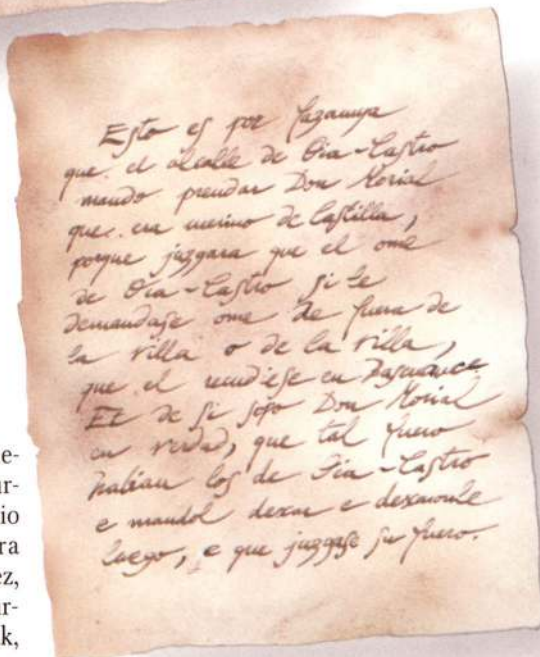 Esto es por fazannya
que el alcalle de Oia-Castro
mando prendar Don Morial
que era merino de Castilla,
porque juzgara que el ome
de Oia-Castro si le
demandase ome de fuera de
la villa o de la villa,
que el recudiese en Bascuence
Et de si sopo Don Morial
en verdad, que tal fuero
habian los de Oia-Castro
e mandol dexar e dexaronle
luego, e que juzgase su fuero.
e-
ur-
io
ra
ez,
ur-
k,